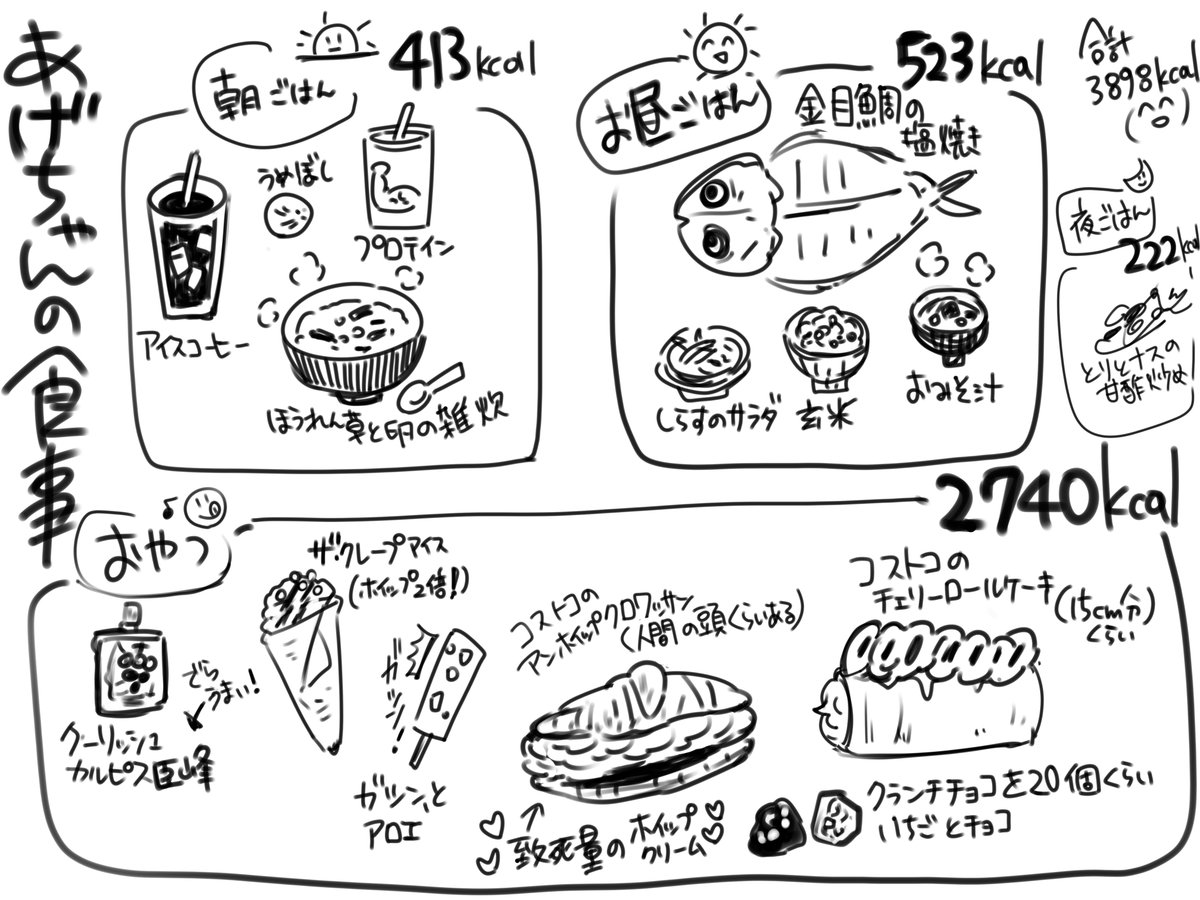 あげちゃんの食事
朝ごはん
413kcal
アイスコーヒー
うめぼし
プロテイン
ほうれん草と卵の雑炊
お昼ごはん
523kcal
金目鯛の
塩焼き
しらすのサラダ
玄米
おみそ汁
合計
3898kcal
夜ごはん
222kcal
とりとナスの
甘酢炒め
おやつ
2740kcal
クーリッシュ
カルピス巨峰
でら
うまい!
ザ・クレープアイス
(ホイップ2倍!)
ガツン!
ガツン、と
アロエ
コストコの
アンホイップクロワッサン
(人間の頭くらいある)
致死量の
ホイップ
クリーム
コストコの
チェリーロールケーキ
(15cm分)
くらい
クランチチョコを20個くらい
いちごとチョコ